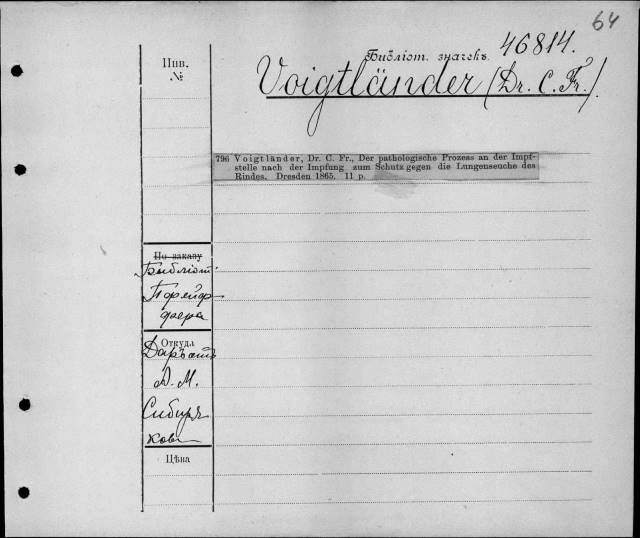 64
Библіот. значекъ. 46814.
Инв.
№
Voigtländer (Dr. C. Fr.).
796 Voigtländer, Dr. C. Fr., Der pathologische Prozess an der Impf-
stelle nach der Impfung zum Schutz gegen die Lungenseuche des
Rindes. Dresden 1865. 11 p.
По заказу
Библіот.
Пфейф
фера
Откуда
Даръ отъ
А. М.
Сибиря
кова
Цѣна